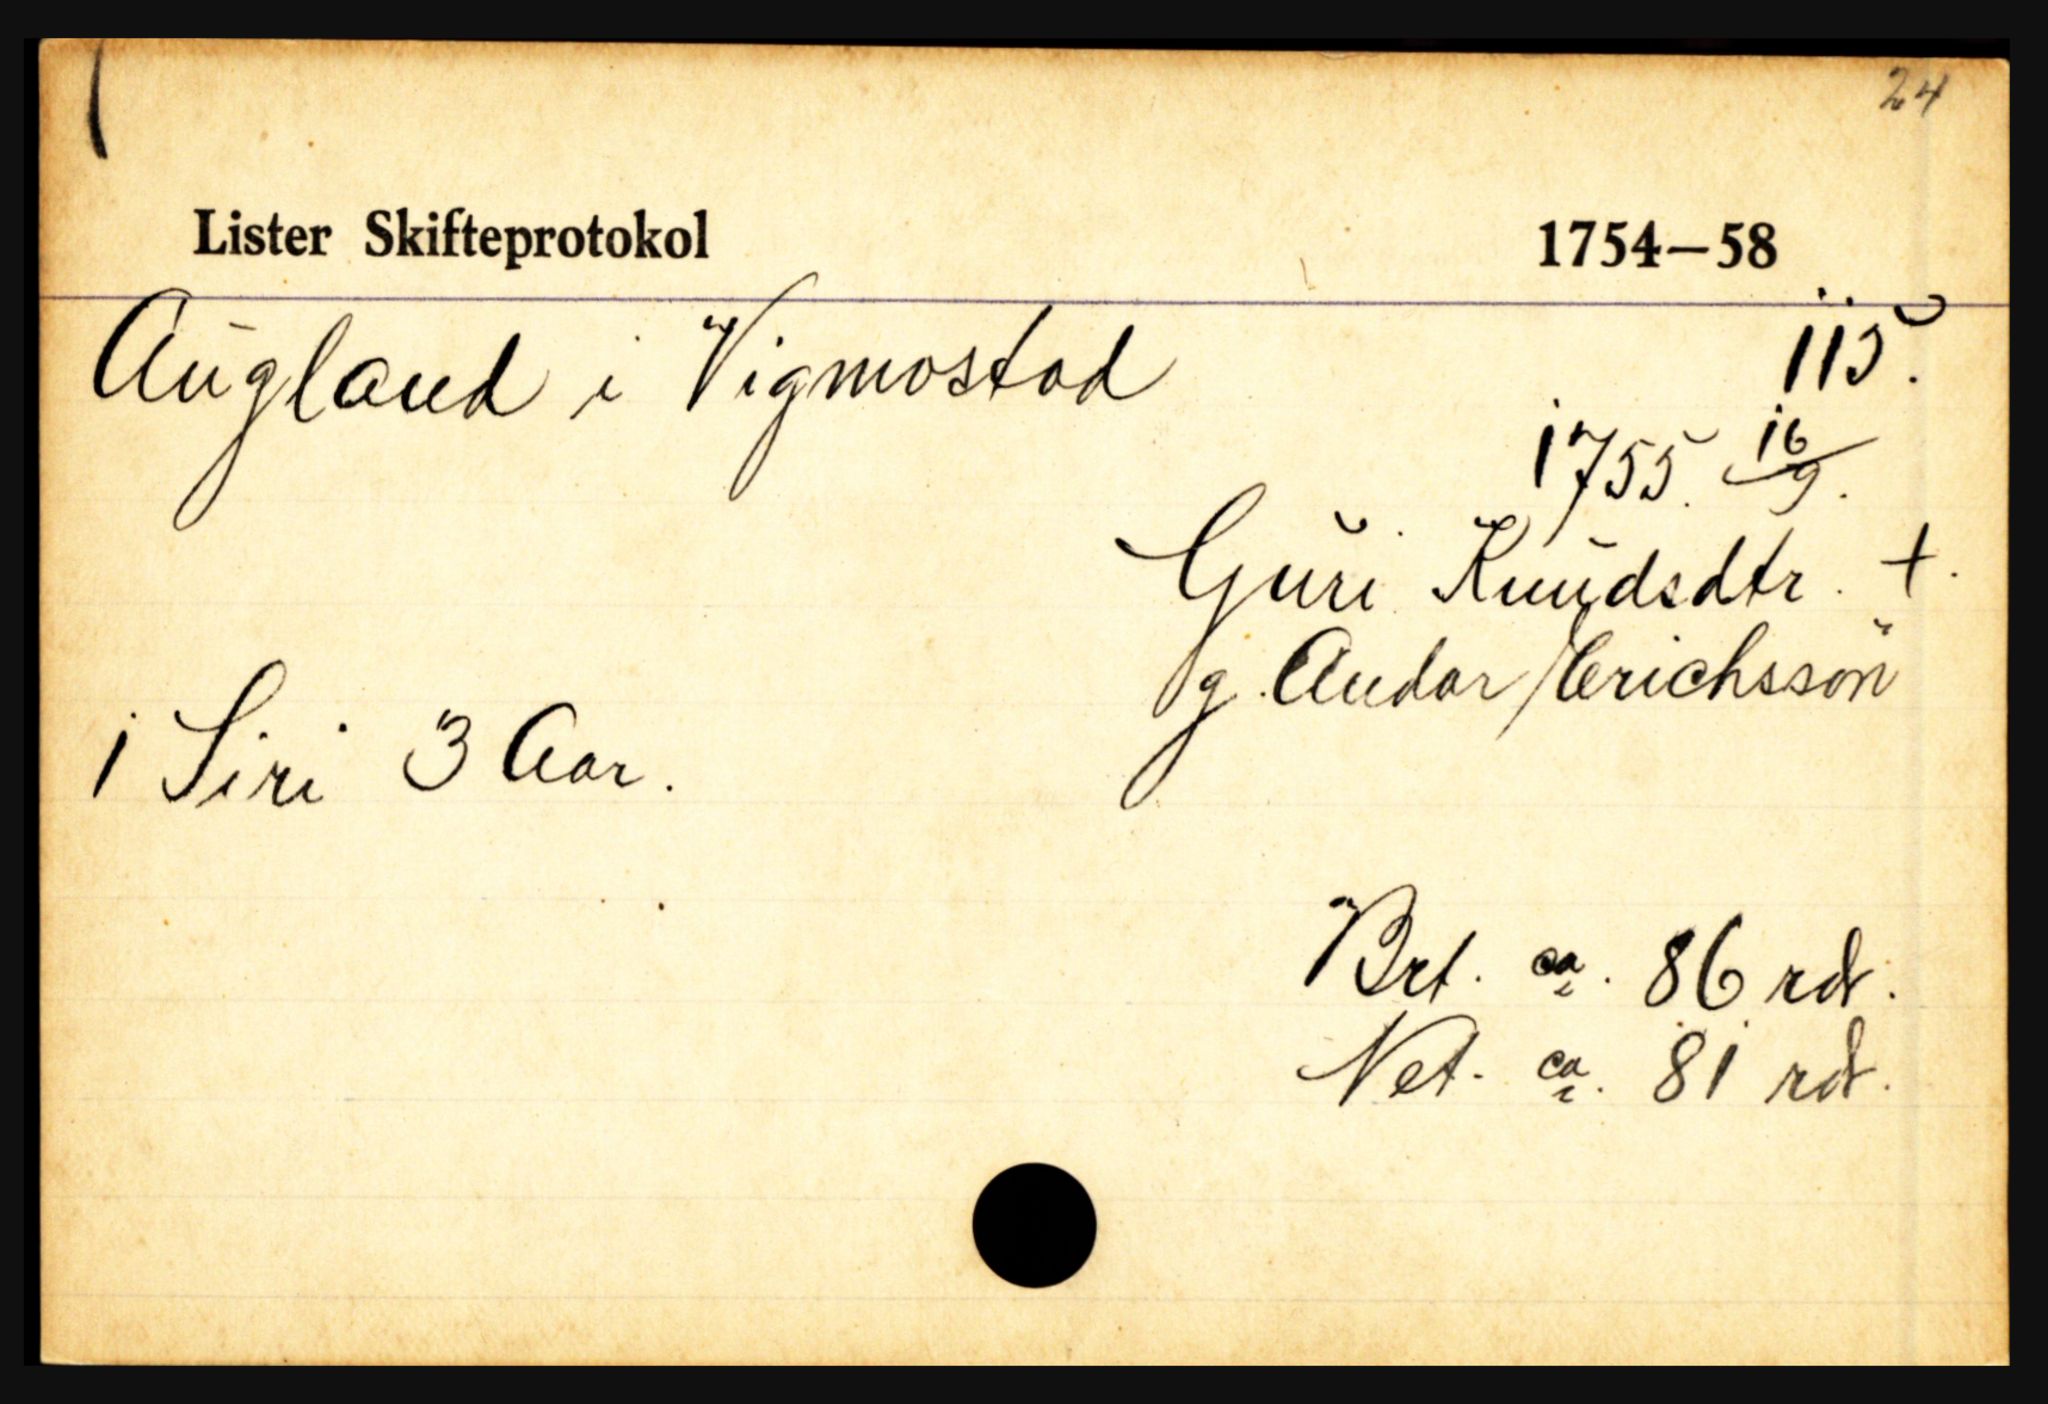 24
Lister Skifteprotokol 1754—58
Augland i Vigmostad 115.
1755. 16/9.
Guri Knudsdtr. +.
g. Andor Erichssön
1 Siri 3 Aar.
Brt. ca. 86 rdr.
Net. ca. 81 rdr.